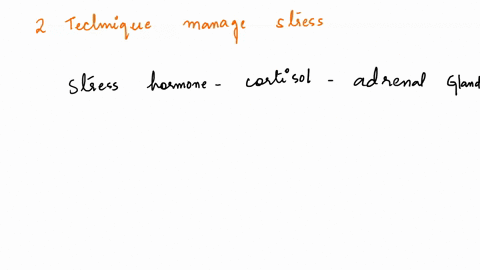 2 Technique manage stress
Stress hormone - cortisol - adrenal Gland